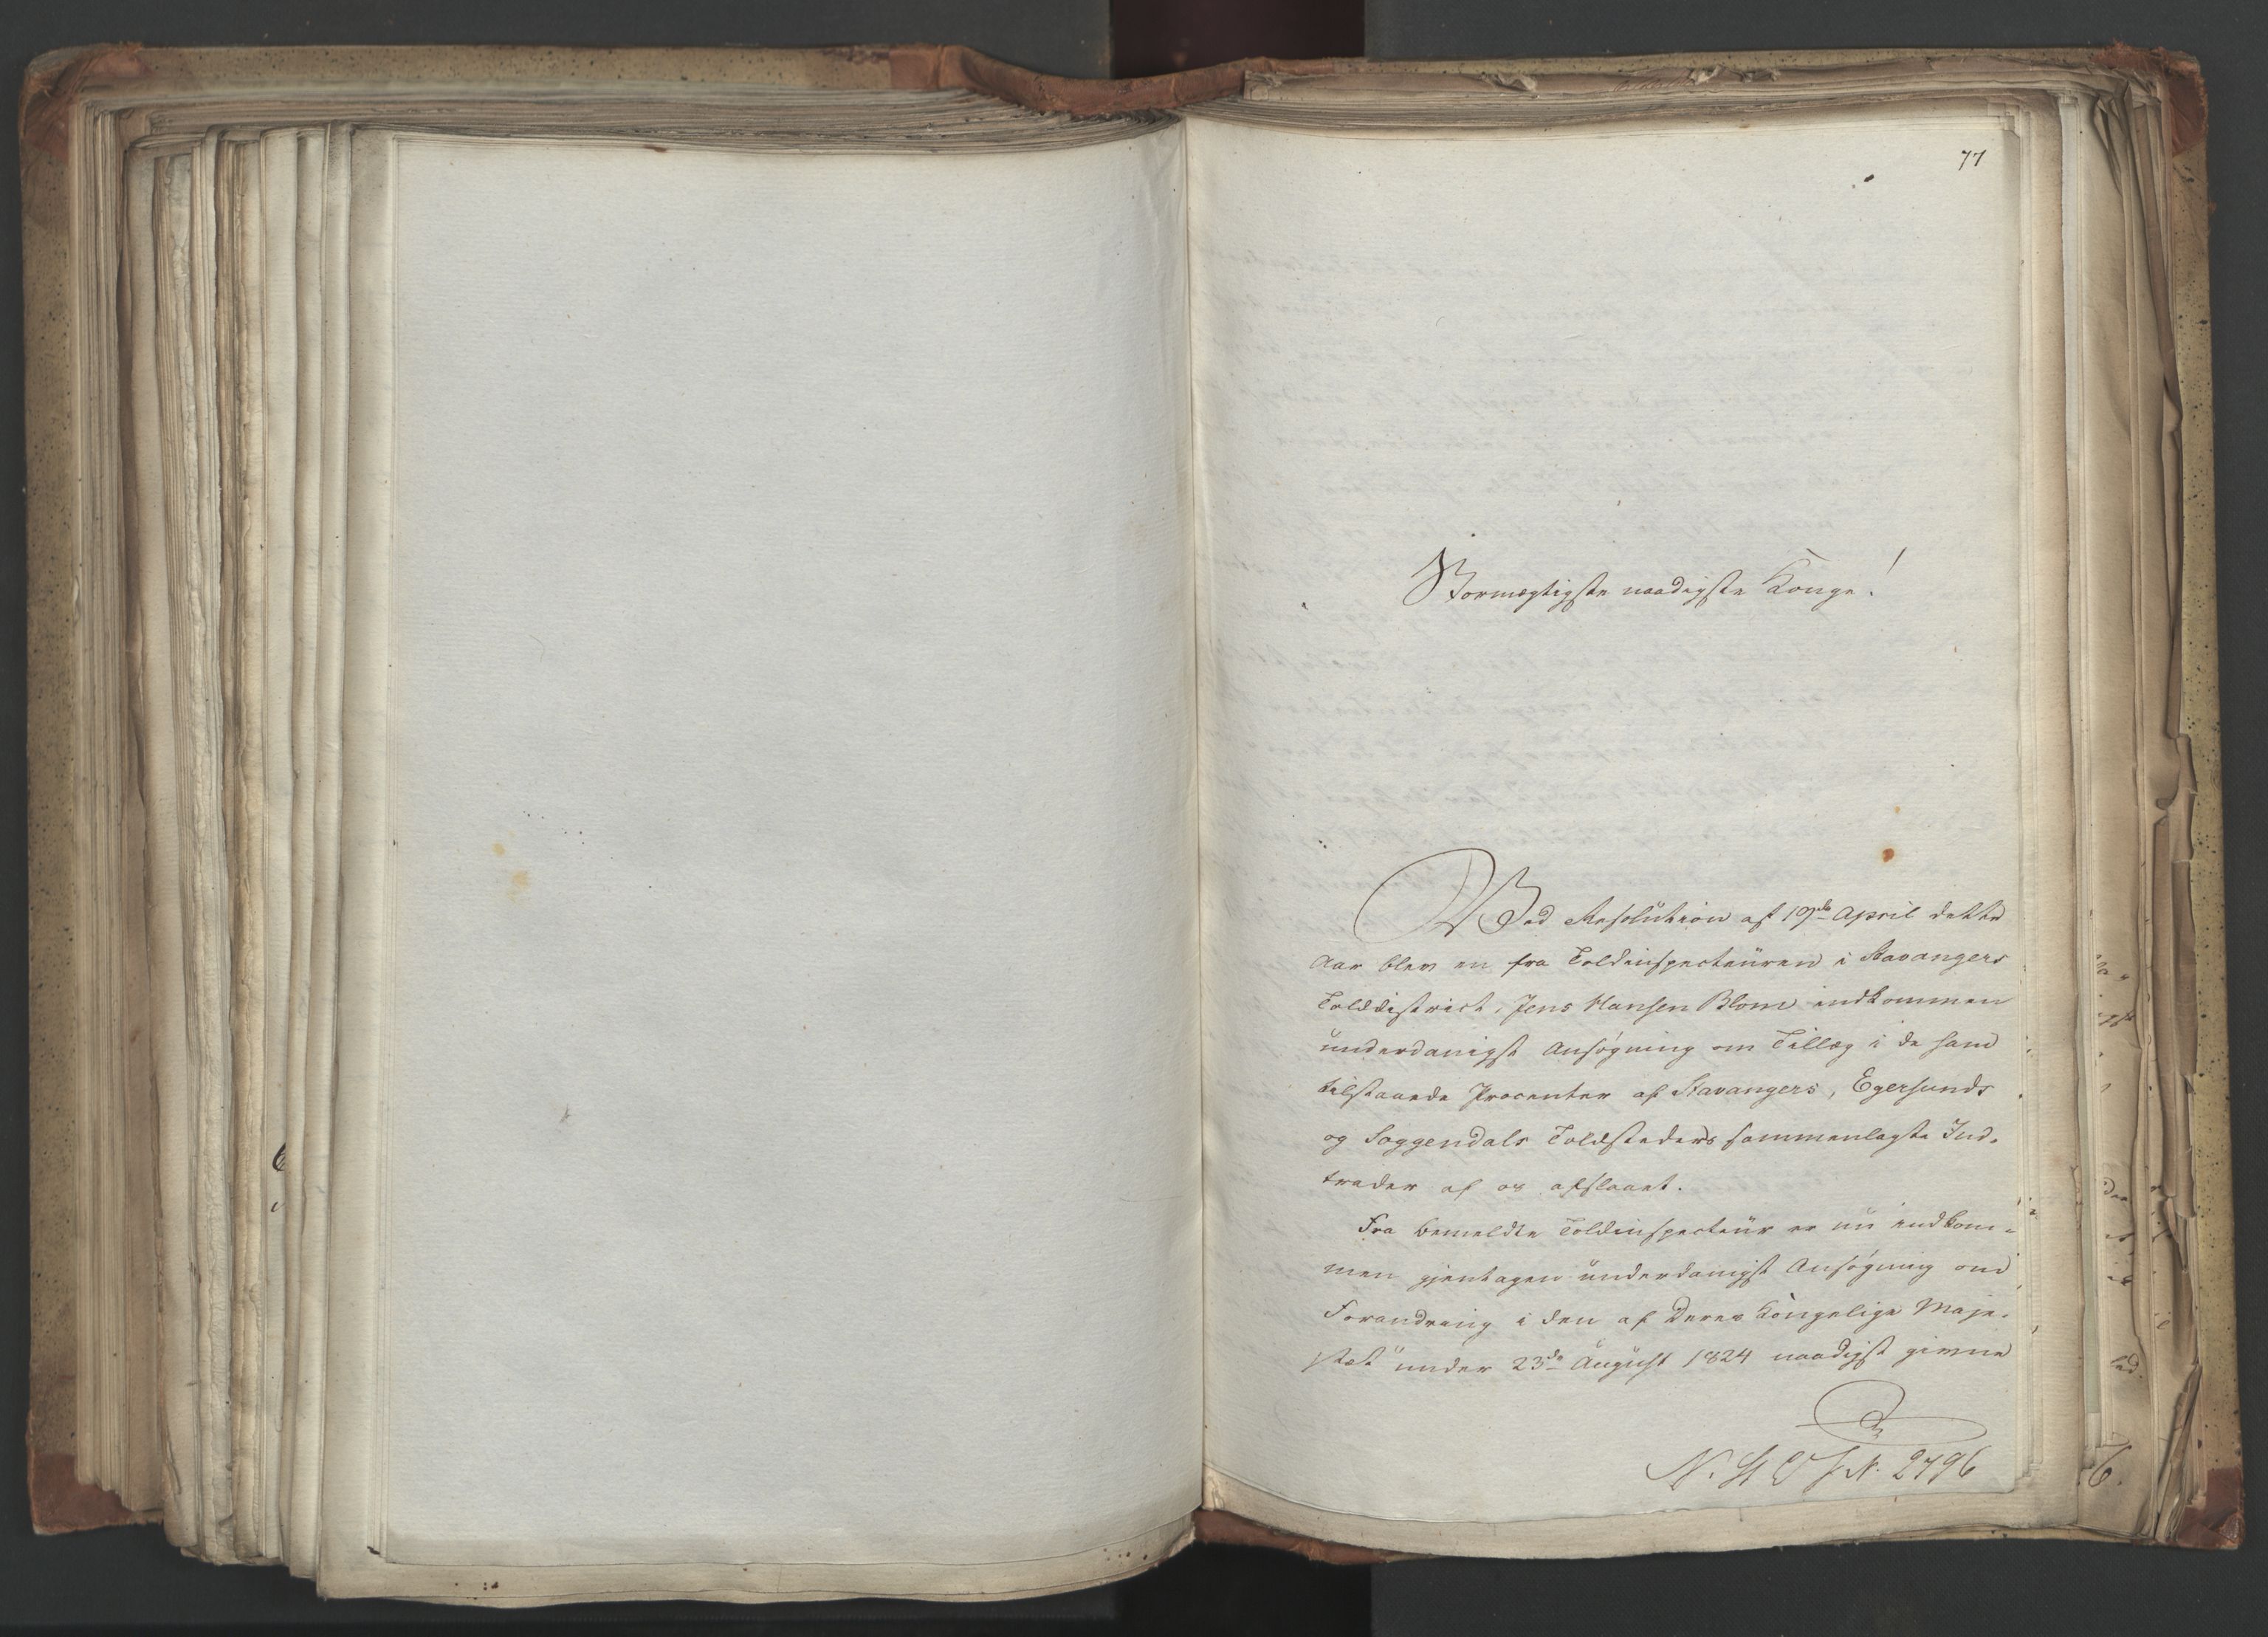 77
Stormægtigste naadigste Konge!
Ved Resolution af 19de April dette
Aar blev en fra Toldinspecteuren i Stavangers
Tolddistrict, Jens Hansen Blom indkommen
underdanigst Ansøgning om Tillæg i de ham
tilstaaede Procenter af Stavangers, Egersunds
og Soggendals Toldsteders sammenlagte Ind-
trader af os afslaaet.
Fra bemeldte Toldinspecteur er nu indkom-
men gjentagen underdanigst Ansøgning om
Forandring i den af Deres Kongelige Maje-
stæt under 23de August 1824 naadigst givne
N. St. S. J. N. 2796